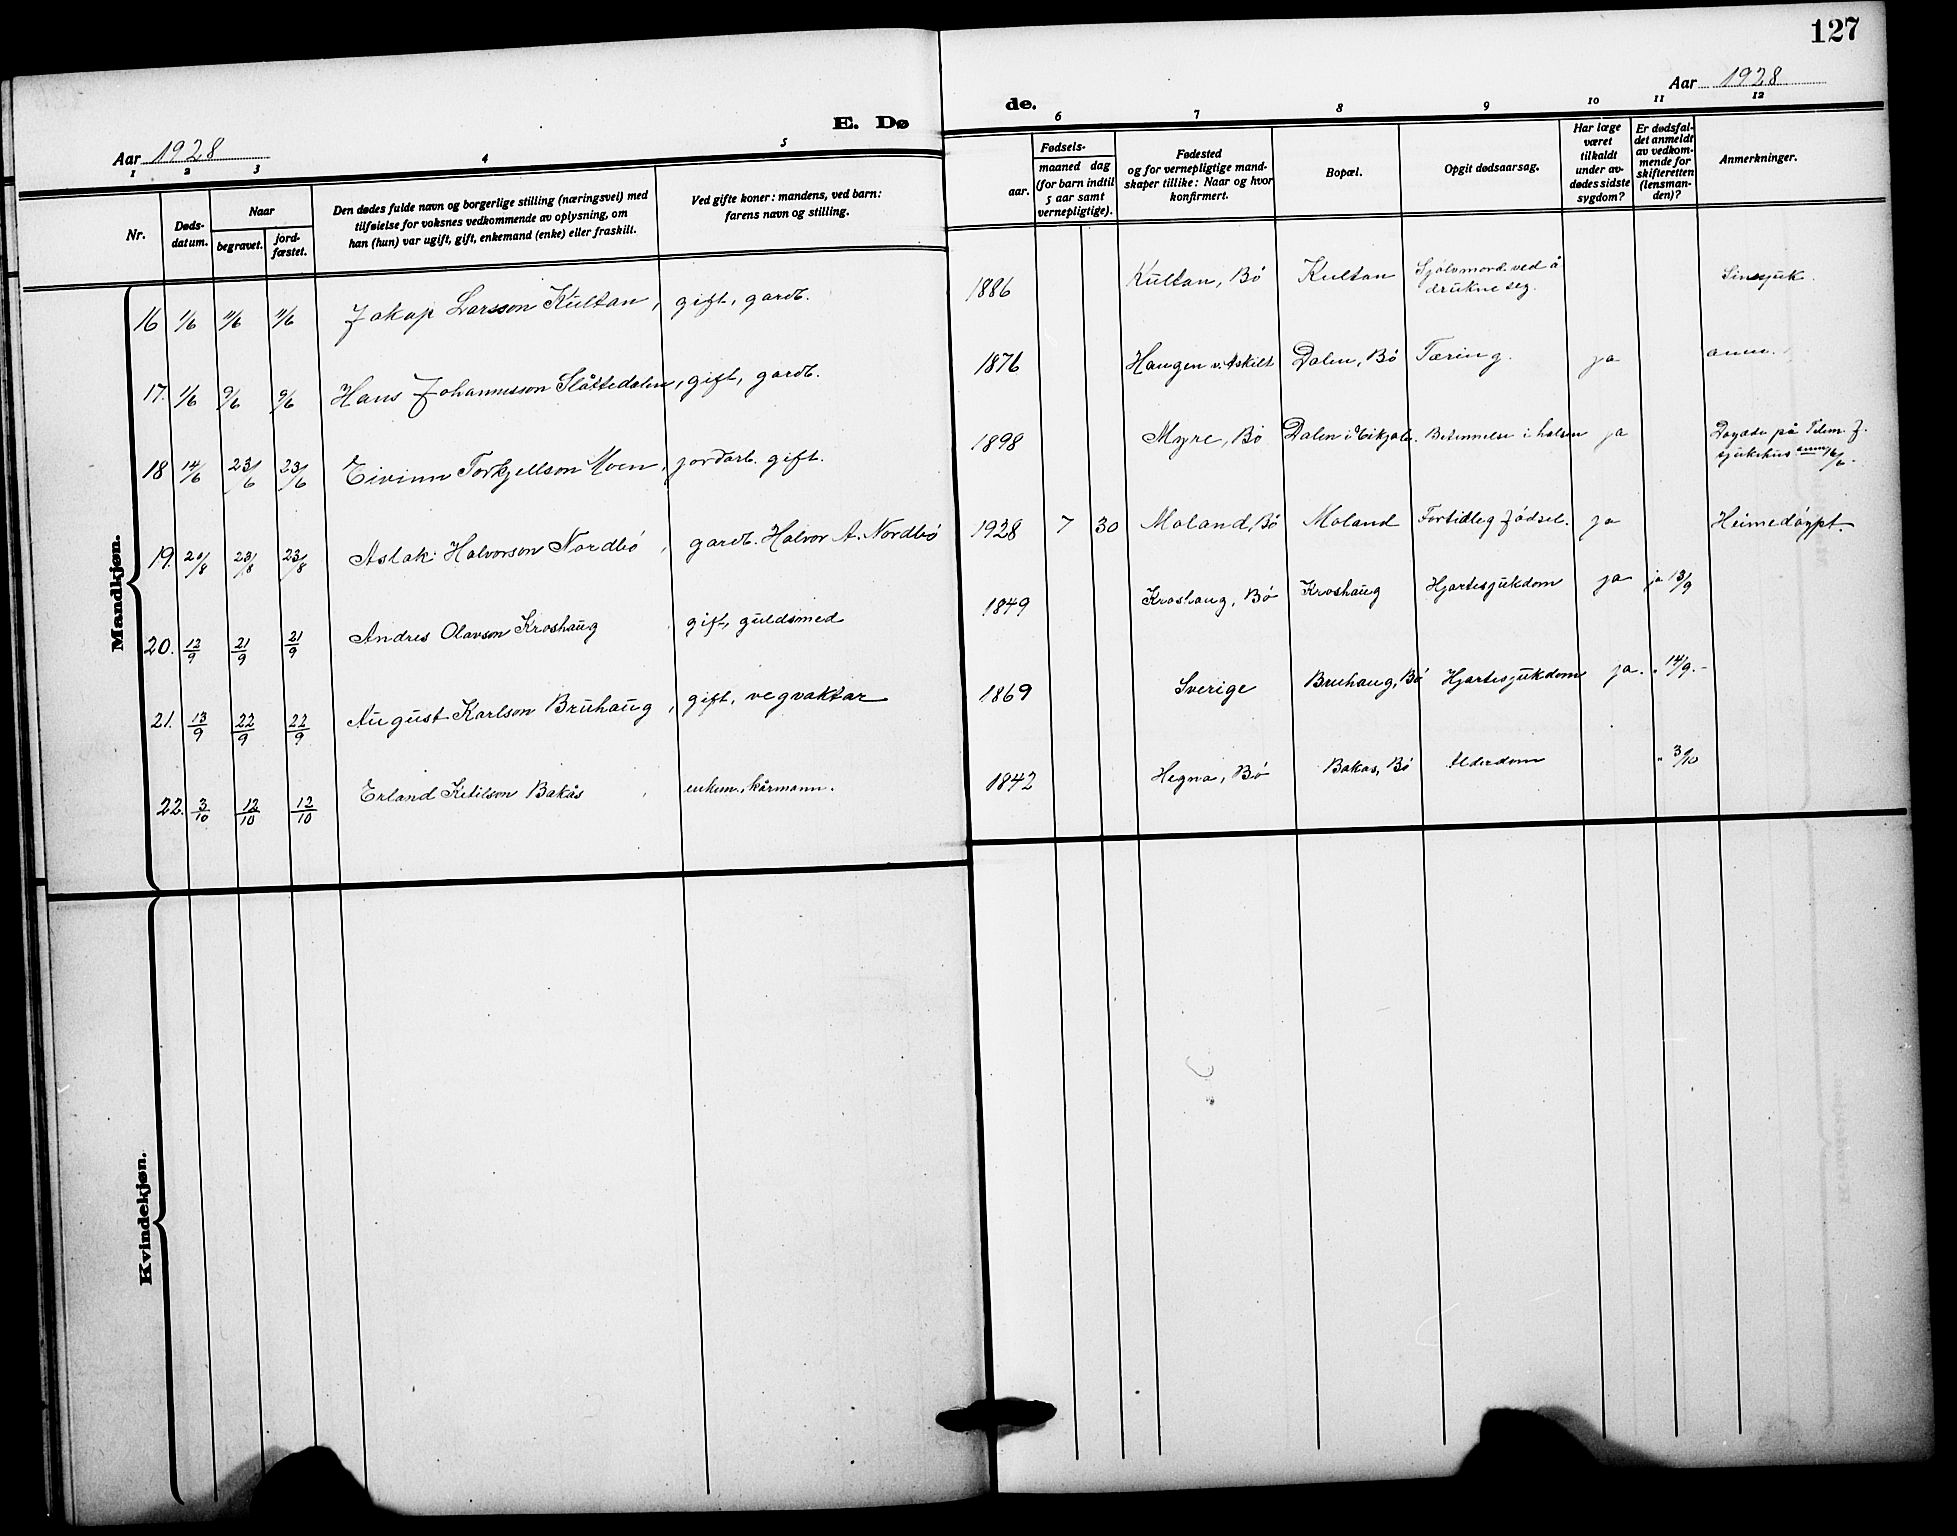 127
Aar 1928
E. Dø
de.
Aar 1928
1 2 3 4 5
6 7 8 9 10 11 12
Nr.
Døds-
datum.
Naar
begravet.
jord-
fæstet.
Den dødes fulde navn og borgerlige stilling (næringsvei) med
tilføielse for voksnes vedkommende av oplysning, om
han (hun) var ugift, gift, enkemand (enke) eller fraskilt.
Ved gifte koner: mandens, ved barn:
farens navn og stilling.
Fødsels-
aar.
maaned dag
(for barn indtil
5 aar samt
vernepligtige).
Fødested
og for vernepligtige mand-
skaper tillike: Naar og hvor
konfirmert.
Bopæl.
Opgit dødsaarsag.
Har læge
været
tilkaldt
under av-
dødes sidste
sygdom?
Er dødsfal-
det anmeldt
av vedkom-
mende for
skifteretten
(lensman-
den)?
Anmerkninger.
Mandkjøn.
16 1/6 11/6 11/6 Jakop Larsson Kultan, gift, gardb. 1886 Kultan, Bö Kultan Sjölvmord ved å
drukne seg. Sinnsjuk.
17. 1/6 9/6 9/6 Hans Johannesson Slåttedalen, gift, gardb. 1876 Haugen u. Askilt Dalen, Bö Tæring. ja
18 14/6 23/6 23/6 Eivinn Torkjellson Moen, jordarb. gift. 1898 Myre, Bö Dalen i Eikjab. Betennelse i halsen ja Döyde på Telem. f.
sjukehus
19. 20/8 23/8 23/8 Aslak Halvorson Nordbö, gardb. Halvor A. Nordbö 1928 7 30 Moland, Bö Moland Fortidleg födsel. ja Heimedöypt.
20. 12/9 21/9 21/9 Andres Olavson Kroshaug gift, guldsmed 1849 Kroshaug, Bö Kroshaug Hjartesjukdom ja ja 13/9
21. 13/9 22/9 22/9 August Karlson Bruhaug, gift, vegvaktar 1869 Sverige Bruhaug, Bö Hjartesjukdom ja. " 14/9.-
22. 3/10 12/10 12/10 Erland Ketilson Bakås, enkem., kårmann. 1842 Hegna, Bö Bakas, Bö Alderdom " 3/10
Kvindekjøn.